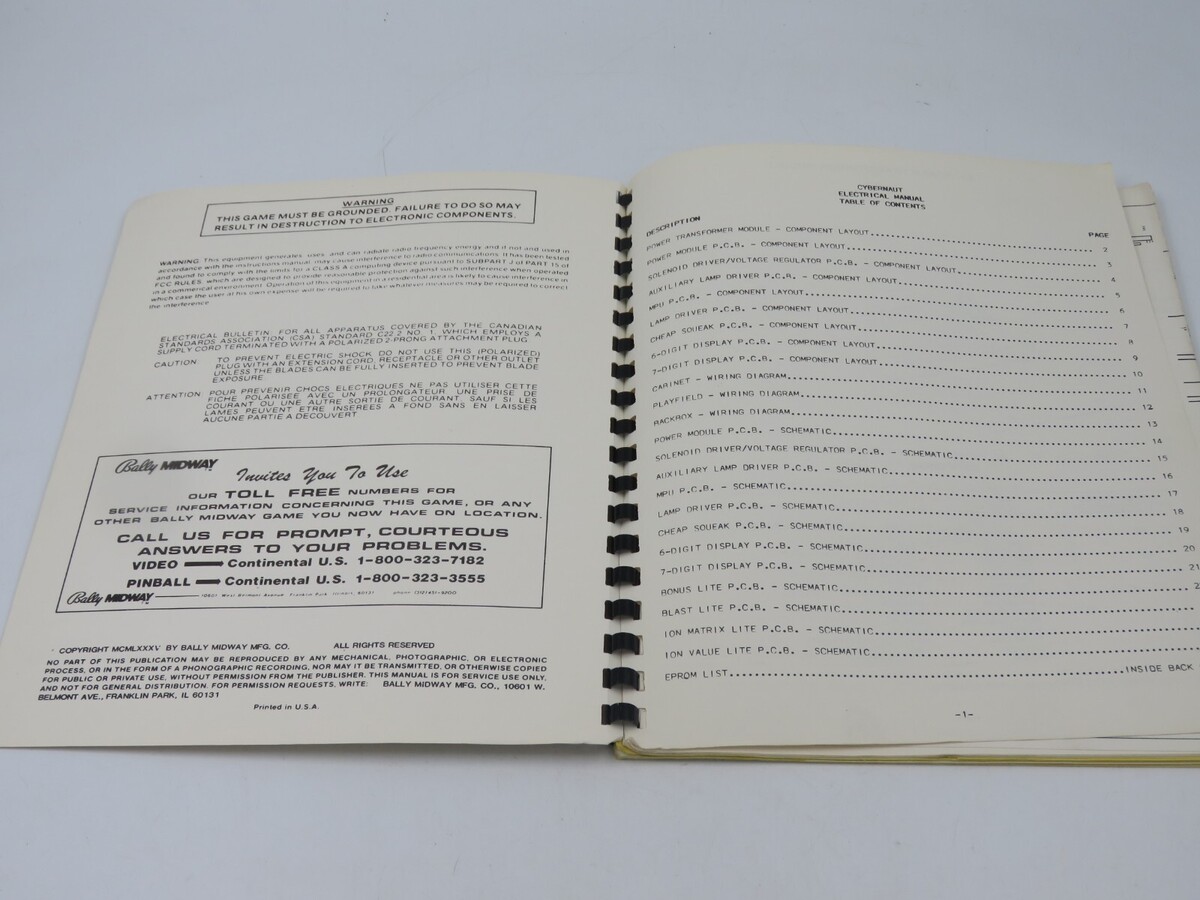 WARNING
THIS GAME MUST BE GROUNDED. FAILURE TO DO SO MAY
RESULT IN DESTRUCTION TO ELECTRONIC COMPONENTS.
WARNING: This equipment generates, uses, and can radiate radio frequency energy and if not and used in
accordance with the instructions manual, may cause interference to radio communications. It has been tested
and found to comply with the limits for a CLASS A computing device pursuant to SUBPART J of PART 15 of
FCC RULES, which are designed to provide reasonable protection against such interference when operated
in a commercial environment. Operation of this equipment in a residential area is likely to cause interference in
which case the user at his own expense will be required to take whatever measures may be required to correct
the interference.
ELECTRICAL BULLETIN: FOR ALL APPARATUS COVERED BY THE CANADIAN
STANDARDS ASSOCIATION (CSA) STANDARD C22.2 NO. 1, WHICH EMPLOYS A
SUPPLY CORD TERMINATED WITH A POLARIZED 2-PRONG ATTACHMENT PLUG.
CAUTION TO PREVENT ELECTRIC SHOCK DO NOT USE THIS (POLARIZED)
PLUG WITH AN EXTENSION CORD, RECEPTACLE OR OTHER OUTLET
UNLESS THE BLADES CAN BE FULLY INSERTED TO PREVENT BLADE
EXPOSURE
ATTENTION POUR PREVENIR CHOCS ELECTRIQUES NE PAS UTILISER CETTE
FICHE POLARISEE AVEC UN PROLONGATEUR, UNE PRISE DE
COURANT OU UNE AUTRE SORTIE DE COURANT, SAUF SI LES
LAMES PEUVENT ETRE INSEREES A FOND SANS EN LAISSER
AUCUNE PARTIE A DECOUVERT
Bally MIDWAY Invites You To Use
OUR TOLL FREE NUMBERS FOR
SERVICE INFORMATION CONCERNING THIS GAME, OR ANY
OTHER BALLY MIDWAY GAME YOU NOW HAVE ON LOCATION.
CALL US FOR PROMPT, COURTEOUS
ANSWERS TO YOUR PROBLEMS.
VIDEO Continental U.S. 1-800-323-7182
PINBALL Continental U.S. 1-800-323-3555
Bally MIDWAY 10601 West Belmont Avenue Franklin Park, Illinois, 60131 phone
COPYRIGHT MCMLXXXV BY BALLY MIDWAY MFG. CO. ALL RIGHTS RESERVED
NO PART OF THIS PUBLICATION MAY BE REPRODUCED BY ANY MECHANICAL, PHOTOGRAPHIC, OR ELECTRONIC
PROCESS, OR IN THE FORM OF A PHONOGRAPHIC RECORDING, NOR MAY IT BE TRANSMITTED, OR OTHERWISE COPIED
FOR PUBLIC OR PRIVATE USE, WITHOUT PERMISSION FROM THE PUBLISHER. THIS MANUAL IS FOR SERVICE USE ONLY,
AND NOT FOR GENERAL DISTRIBUTION. FOR PERMISSION REQUESTS, WRITE: BALLY MIDWAY MFG. CO., 10601 W.
BELMONT AVE., FRANKLIN PARK, IL 60131
Printed in U.S.A.
CYBERNAUT
ELECTRICAL MANUAL
TABLE OF CONTENTS
DESCRIPTION PAGE
POWER TRANSFORMER MODULE - COMPONENT LAYOUT 2
POWER MODULE P.C.B. - COMPONENT LAYOUT 3
SOLENOID DRIVER/VOLTAGE REGULATOR P.C.B. - COMPONENT LAYOUT 4
AUXILIARY LAMP DRIVER P.C.B. - COMPONENT LAYOUT 5
MPU P.C.B. - COMPONENT LAYOUT 6
LAMP DRIVER P.C.B. - COMPONENT LAYOUT 7
CHEAP SQUEAK P.C.B. - COMPONENT LAYOUT 8
6-DIGIT DISPLAY P.C.B. - COMPONENT LAYOUT 9
7-DIGIT DISPLAY P.C.B. - COMPONENT LAYOUT 10
CABINET - WIRING DIAGRAM 11
PLAYFIELD - WIRING DIAGRAM 12
BACKBOX - WIRING DIAGRAM 13
POWER MODULE P.C.B. - SCHEMATIC 14
SOLENOID DRIVER/VOLTAGE REGULATOR P.C.B. - SCHEMATIC 15
AUXILIARY LAMP DRIVER P.C.B. - SCHEMATIC 16
MPU P.C.B. - SCHEMATIC 17
LAMP DRIVER P.C.B. - SCHEMATIC 18
CHEAP SQUEAK P.C.B. - SCHEMATIC 19
6-DIGIT DISPLAY P.C.B. - SCHEMATIC 20
7-DIGIT DISPLAY P.C.B. - SCHEMATIC 21
BONUS LITE P.C.B. - SCHEMATIC 2
BLAST LITE P.C.B. - SCHEMATIC
ION MATRIX LITE P.C.B. - SCHEMATIC
ION VALUE LITE P.C.B. - SCHEMATIC
EPROM LIST INSIDE BACK
-1-